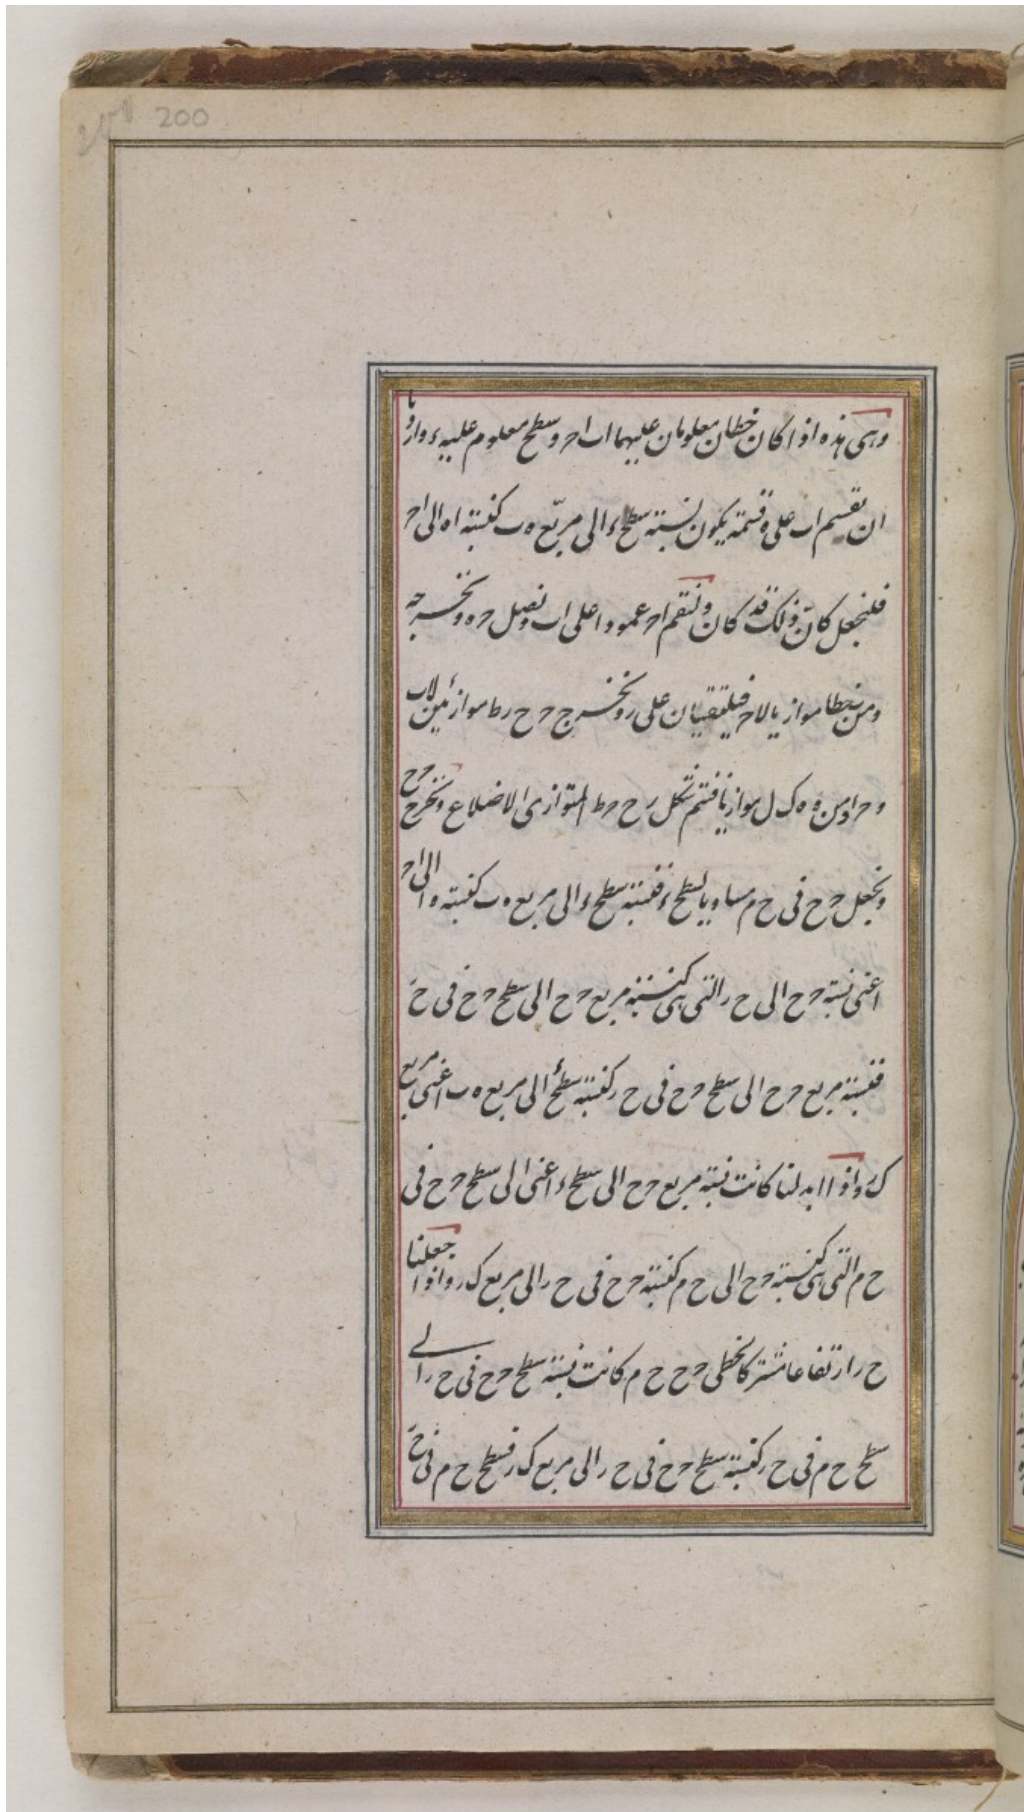 200
وهى هذه اذا كان خطان معلومان عليهما اب اح وسطح معلوم عليه ء واردنا
ان نقسم اب على ه قسمة يكون نسبة سطح ء الى مربع ه ب كنسبة اه الى اح
فلنجعل كان ذلك قد كان ونقم اح عمودا على اب ونصل ح ه ونخرجه
ومن ب خطا موازيا لاح فيلتقيان على ر ونخرج ح ح ر ط موازيين لاب
و ح ا ومن ه ه ك ل موازيا فتم شكل ر ح ح ط المتوازى الاضلاع ونخرج ح ح
ونجعل ح ح فى ح م مساويا لسطح ء فنسبة سطح ء الى مربع ه ب كنسبة ه ا الى اح
اعنى نسبة ح ح الى ح ر التى هى كنسبة مربع ح ح الى سطح ح ح فى ح ر
فنسبة مربع ح ح الى سطح ح ح فى ح ر كنسبة سطح ء الى مربع ه ب اعنى مربع
ك ر واذا ابدلنا كانت نسبة مربع ح ح الى سطح ء اعنى الى سطح ح ح فى
ح م التى هى كنسبة ح ح الى ح م كنسبة ح ح فى ح ر الى مربع ك ر واذا جعلنا
ح ر ارتفاعا مشتركا لخطى ح ح ح م كانت نسبة سطح ح ح فى ح ر الى
سطح ح م فى ح ر كنسبة سطح ح ح فى ح ر الى مربع ك ر فسطح ح م فى ح ر